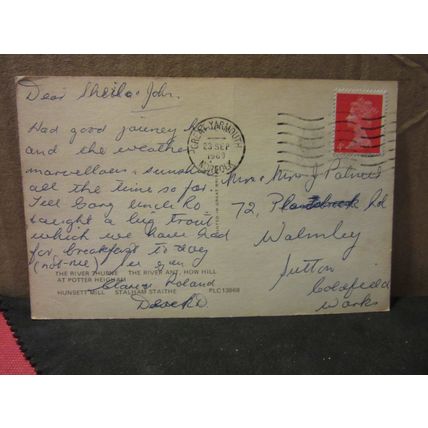 Dear Sheila & John.
Had good journey
and the weather
marvellous & sunshine
all the time so far.
Tell Gary uncle Ro
caught a big trout
which we have had
for breakfast to day
(not me)
Roland
GREAT YARMOUTH
23 SEP
1969
NORFOLK
72,
Rd
Walmley
Sutton
Coldfield
Warks
THE RIVER THURNE
AT POTTER HEIGHAM
THE RIVER ANT, HOW HILL
HUNSETT MILL
STALHAM STAITHE
PLC13868